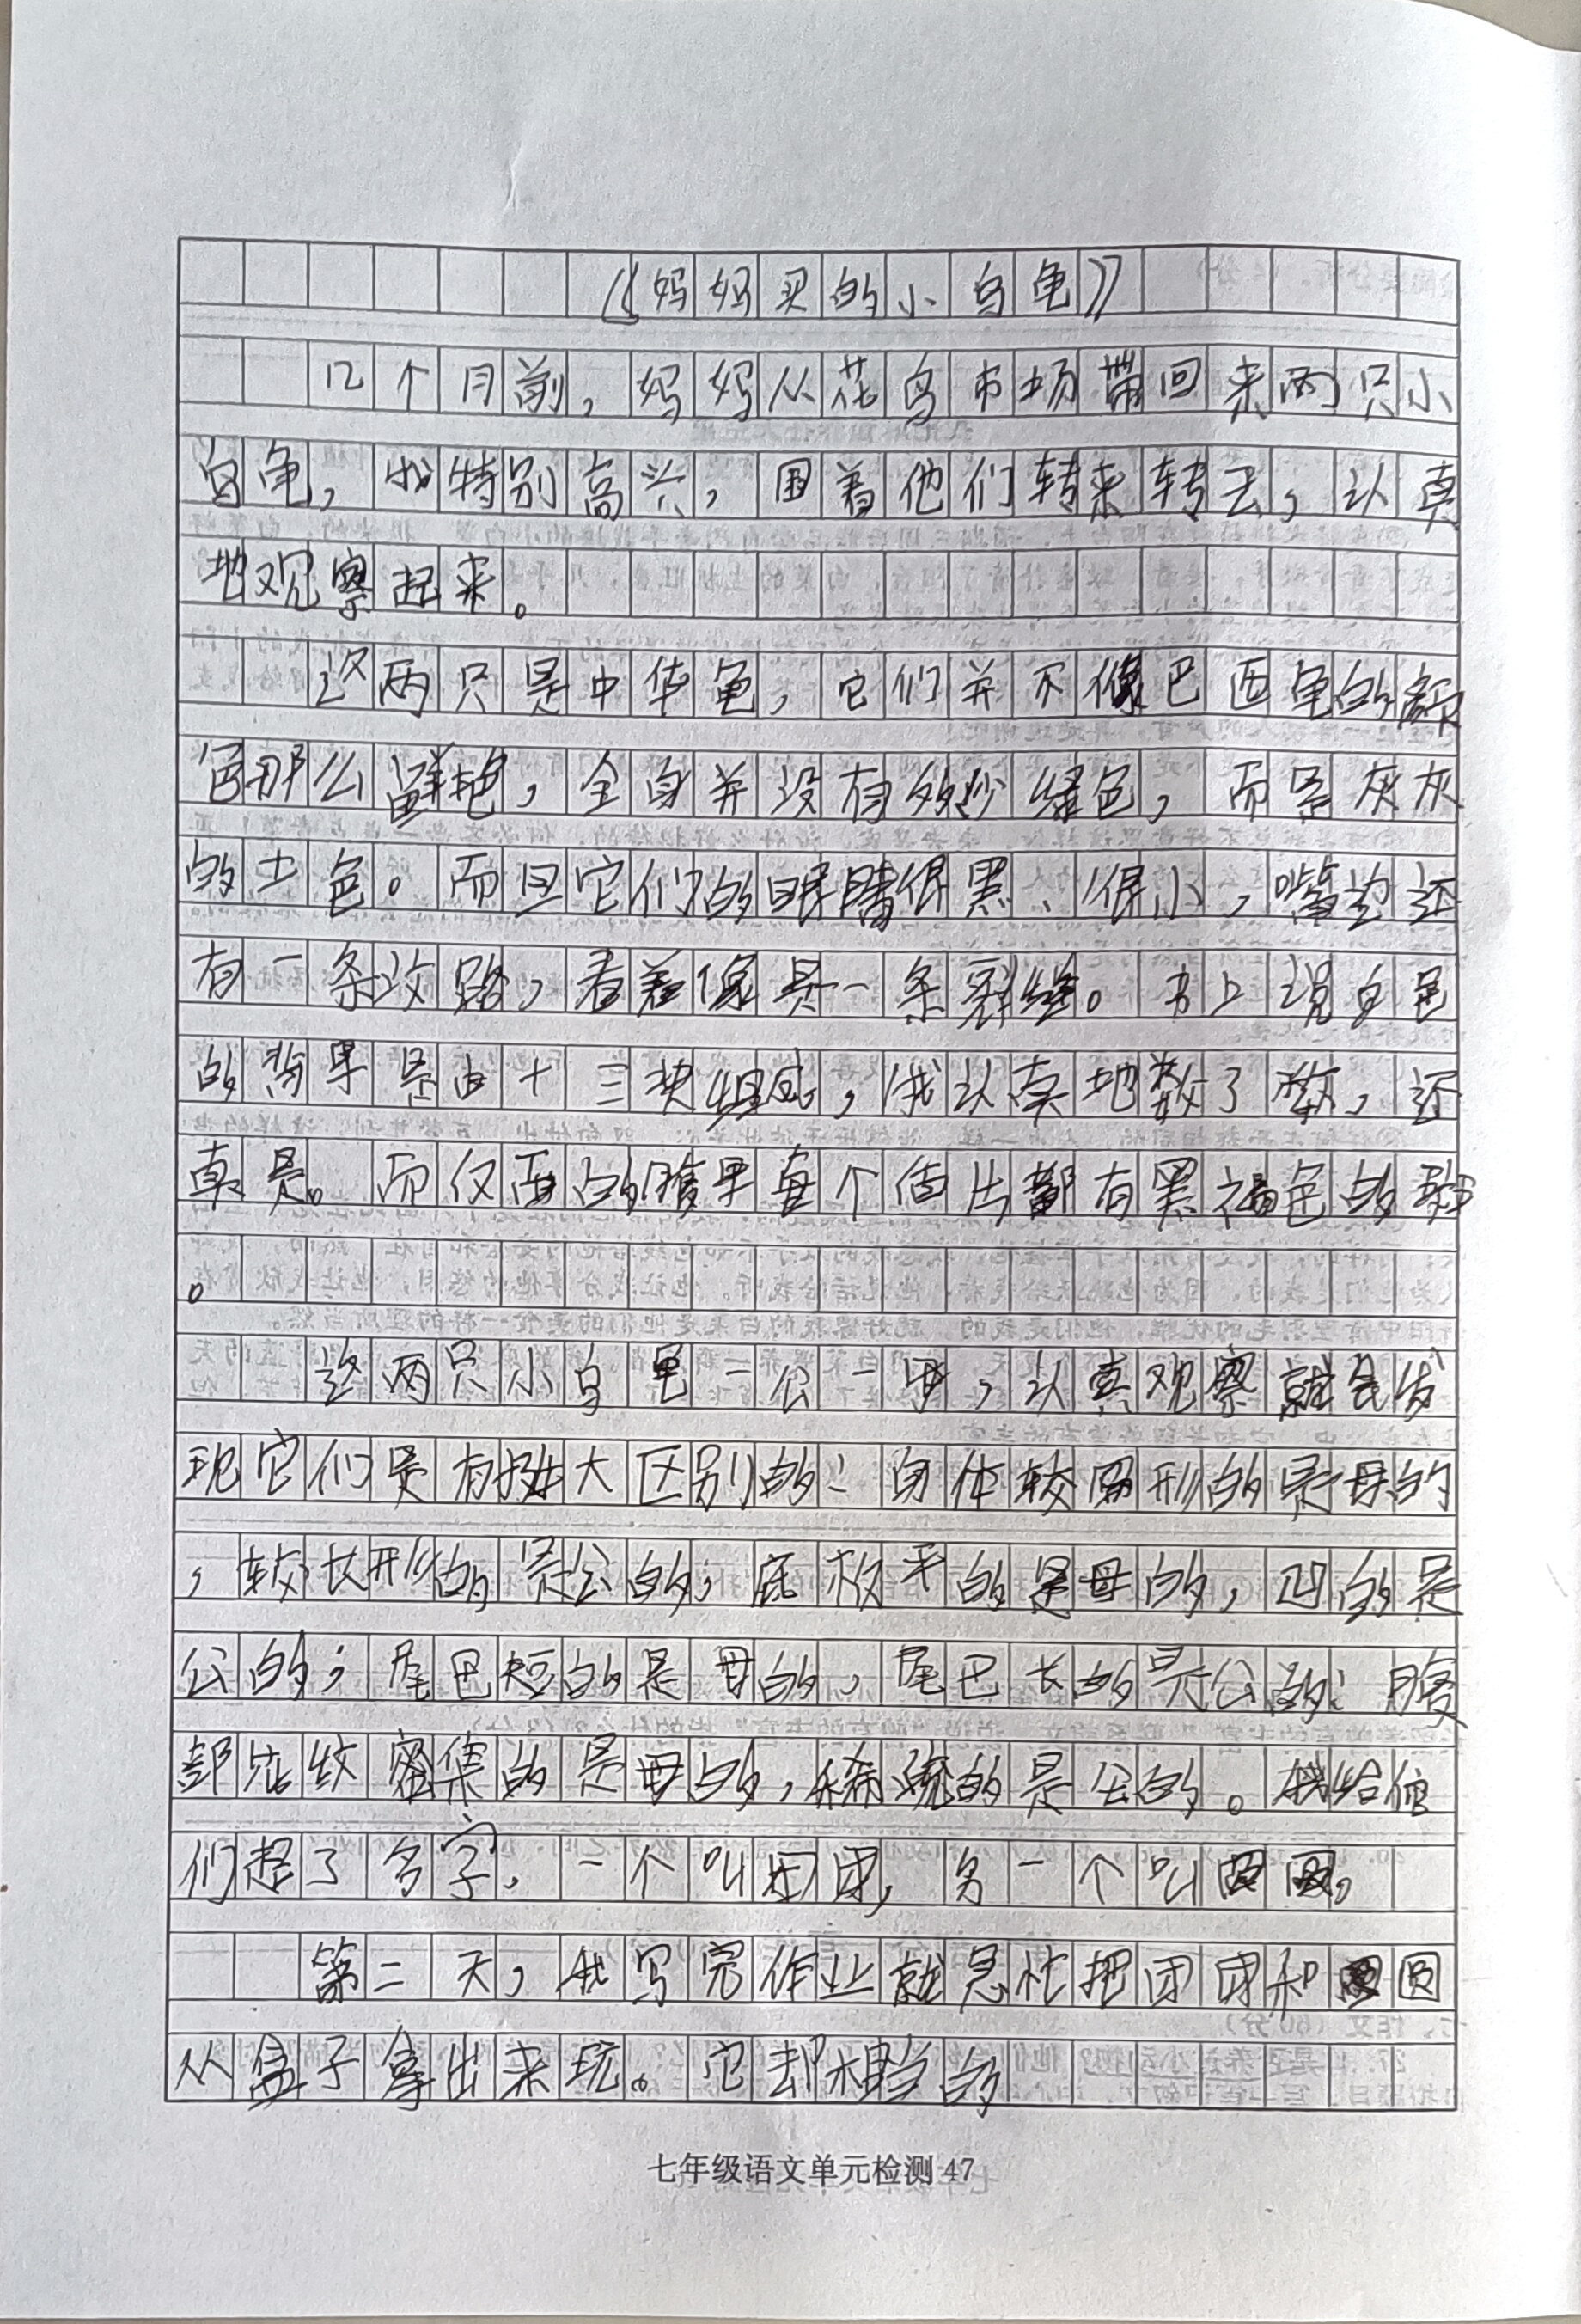 《妈妈买的小乌龟》
几个月前，妈妈从花鸟市场带回来两只小
乌龟，我特别高兴，围着他们转来转去，认真
地观察起来。
这两只是中华龟，它们并不像巴西龟的颜
色那么鲜艳，全身并没有多少绿色，而是灰灰
的土色。而且它们的眼睛很黑、很小，嘴边还
有一条纹路，看着像是一条裂缝。书上说乌龟
的背甲是由十三块组成，我认真地数了数，还
真是。而仅面的腹甲每个盾片都有黑褐色的
。
这两只小乌龟一公一母，认真观察就会发
现它们是有挺大区别的：身体较圆形的是母的
，较长形的是公的；底板平的是母的，凹的是
公的；尾巴短的是母的，尾巴长的是公的；腹
部花纹密集的是母的，稀疏的是公的。我给他
们起了名字，一个叫团团，另一个叫圆圆。
第二天，我写完作业就急忙把团团和圆
从盒子拿出来玩。它却相当的
七年级语文单元检测 47